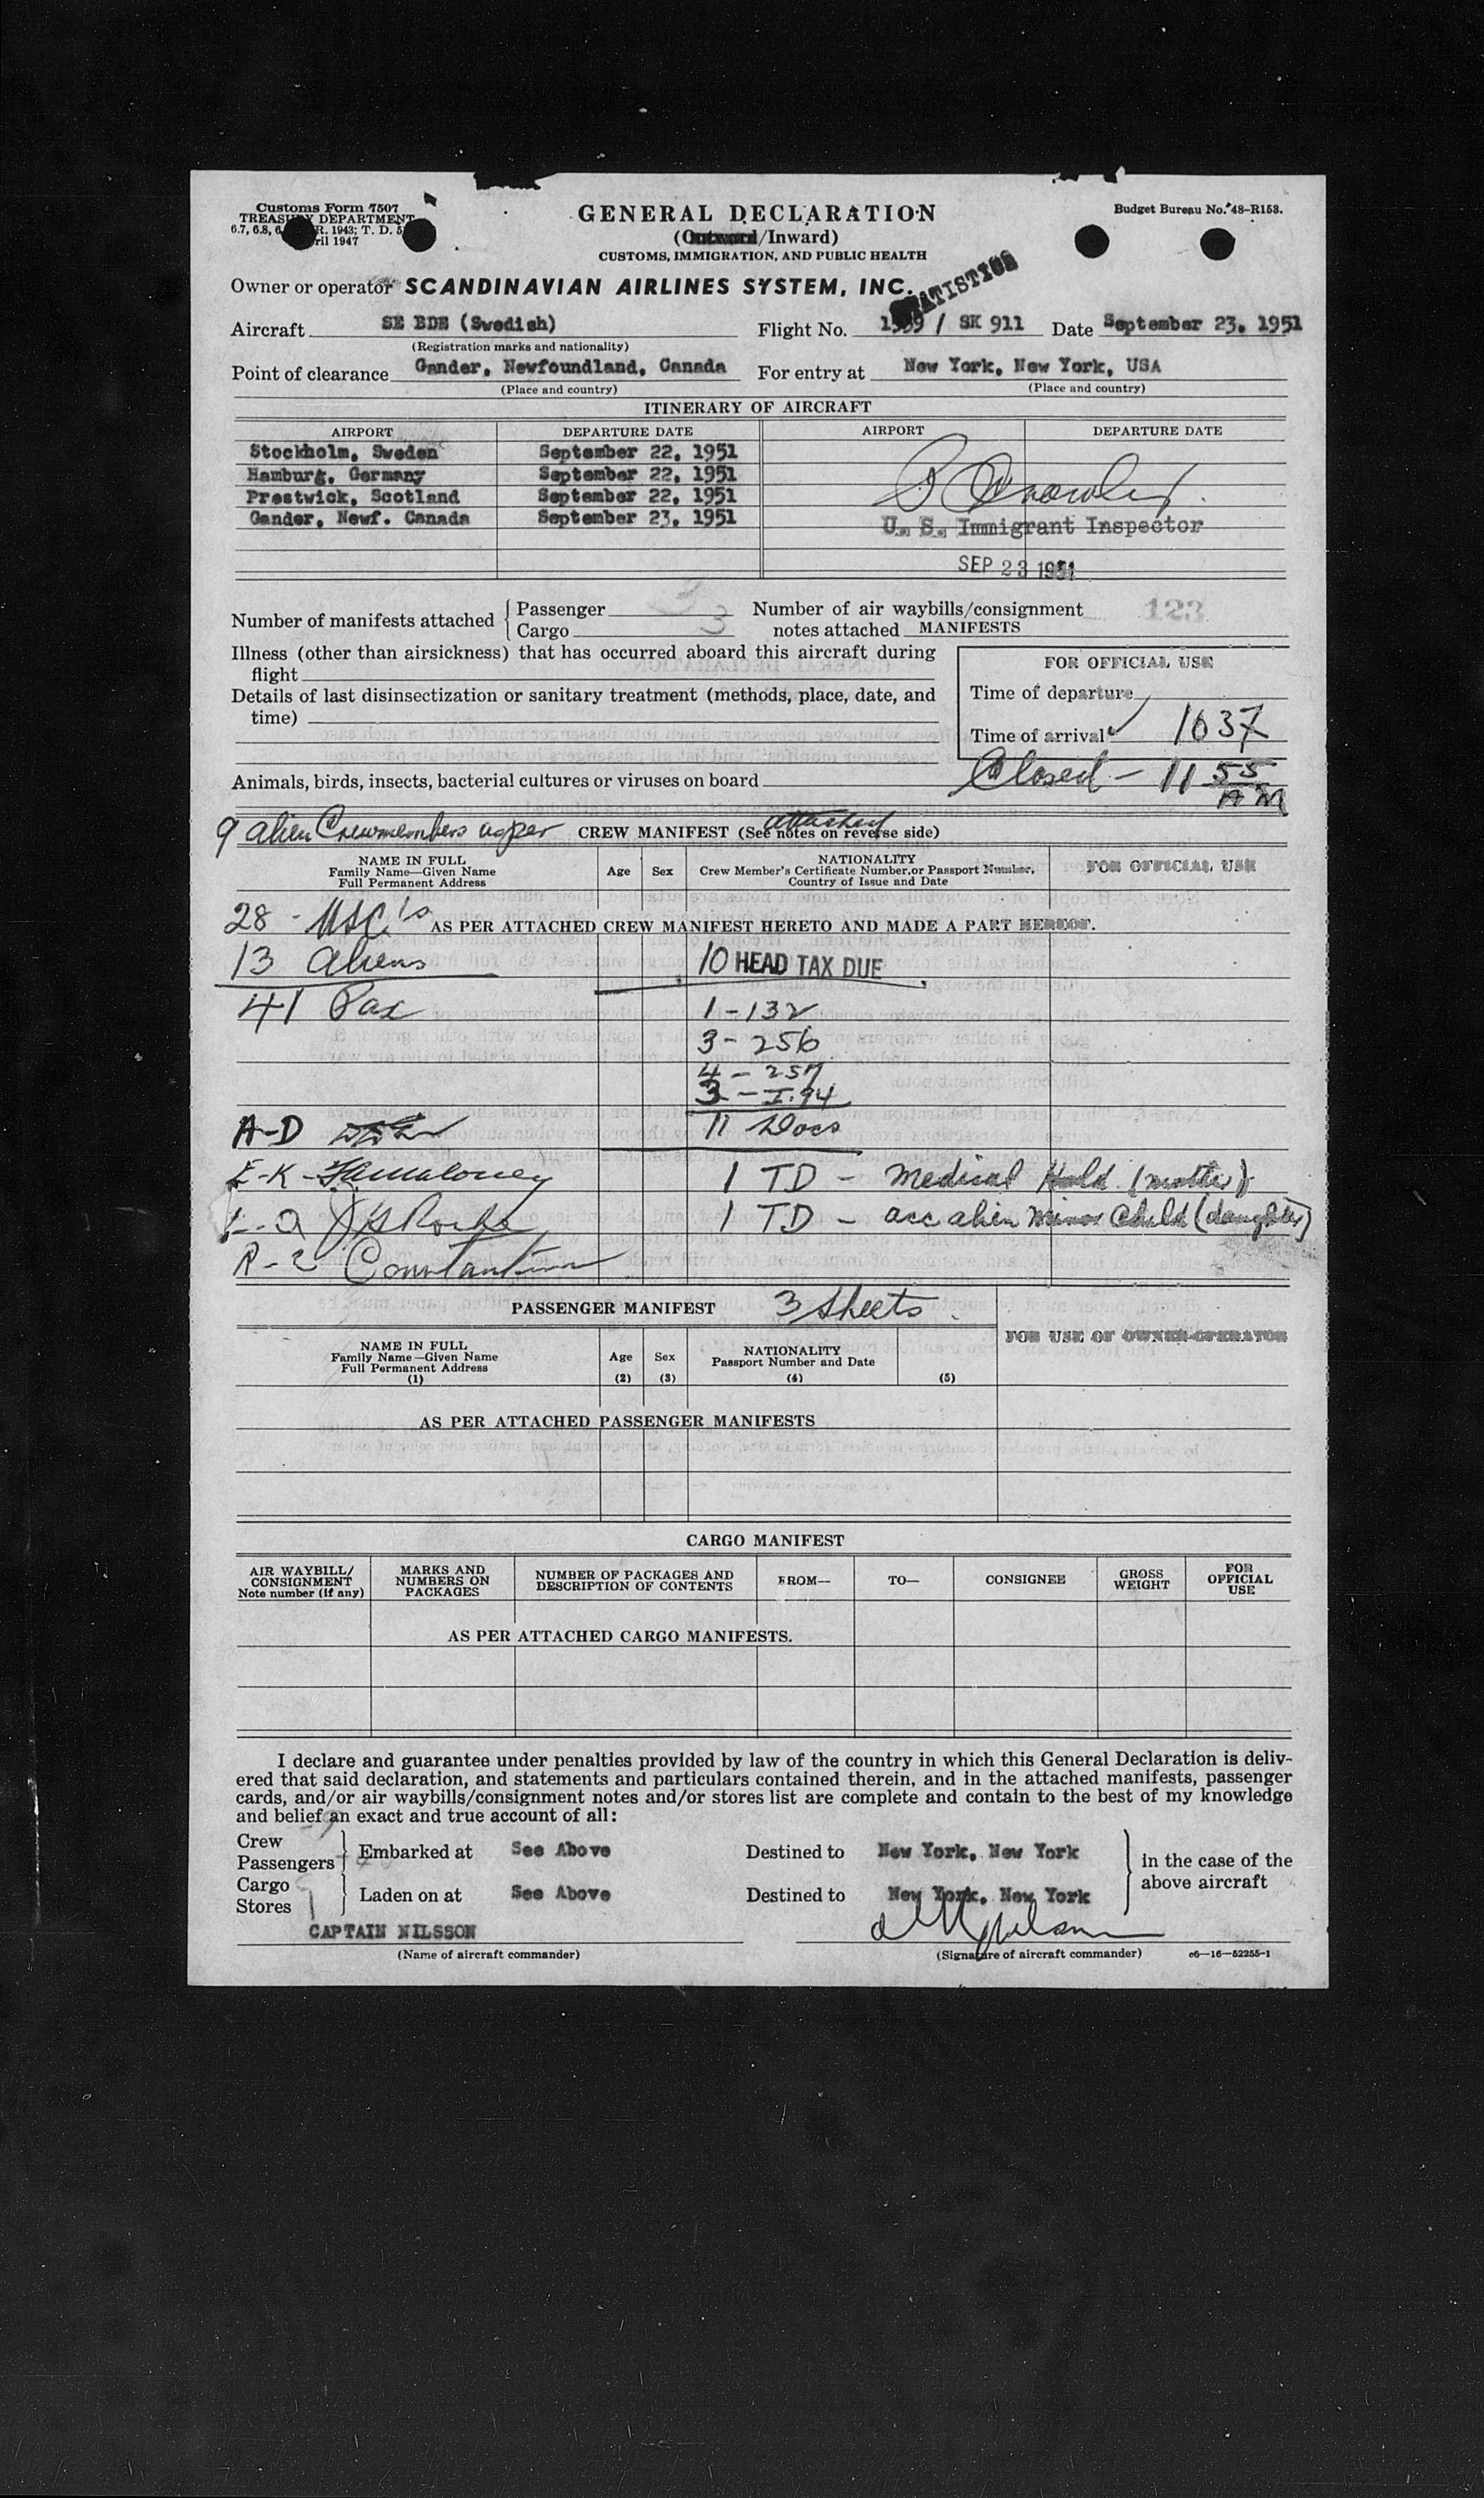 Customs Form 7507
TREASURY DEPARTMENT
GENERAL DECLARATION
Budget Bureau No. 48-R153.
(Outward/Inward)
CUSTOMS, IMMIGRATION, AND PUBLIC HEALTH
Owner or operator SCANDINAVIAN AIRLINES SYSTEM, INC.
Aircraft SE BDE (Swedish) Flight No. / SK 911 Date September 23, 1951
(Registration marks and nationality)
Point of clearance Gander, Newfoundland, Canada For entry at New York, New York, USA
(Place and country) (Place and country)
ITINERARY OF AIRCRAFT
AIRPORT DEPARTURE DATE AIRPORT DEPARTURE DATE
Stockholm, Sweden September 22, 1951
Hamburg, Germany September 22, 1951
Prestwick, Scotland September 22, 1951
Gander, Newf. Canada September 23, 1951
U. S. Immigrant Inspector
SEP 23 1951
Number of manifests attached { Passenger 3
Cargo 3
Number of air waybills/consignment 123
notes attached MANIFESTS
Illness (other than airsickness) that has occurred aboard this aircraft during
flight
Details of last disinsectization or sanitary treatment (methods, place, date, and
time)
FOR OFFICIAL USE
Time of departure
Time of arrival 1037
Closed - 11 55 AM
Animals, birds, insects, bacterial cultures or viruses on board
9 alien Crewmembers as per attached
CREW MANIFEST (See notes on reverse side)
NAME IN FULL
Family Name—Given Name
Full Permanent Address
Age Sex
NATIONALITY
Crew Member's Certificate Number, or Passport Number,
Country of Issue and Date
FOR OFFICIAL USE
28 - USC's
AS PER ATTACHED CREW MANIFEST HERETO AND MADE A PART HEREOF.
13 Aliens 10 HEAD TAX DUE
41 Pax 1 - 132
3 - 256
4 - 257
3 - I-94
A-D 11 Docs
E-K - 1 TD - Medical Hold (mother)
L-Q 1 TD - acc alien Minor Child (daughter)
R-Z
PASSENGER MANIFEST 3 Sheets
FOR USE OF OWNER-OPERATOR
NAME IN FULL
Family Name—Given Name
Full Permanent Address
(1)
Age
(2)
Sex
(3)
NATIONALITY
Passport Number and Date
(4) (5)
AS PER ATTACHED PASSENGER MANIFESTS
CARGO MANIFEST
AIR WAYBILL/
CONSIGNMENT
Note number (if any)
MARKS AND
NUMBERS ON
PACKAGES
NUMBER OF PACKAGES AND
DESCRIPTION OF CONTENTS
FROM— TO— CONSIGNEE
GROSS
WEIGHT
FOR
OFFICIAL
USE
AS PER ATTACHED CARGO MANIFESTS.
I declare and guarantee under penalties provided by law of the country in which this General Declaration is deliv-
ered that said declaration, and statements and particulars contained therein, and in the attached manifests, passenger
cards, and/or air waybills/consignment notes and/or stores list are complete and contain to the best of my knowledge
and belief an exact and true account of all:
Crew
Passengers } Embarked at See Above Destined to New York, New York
Cargo
Stores } Laden on at See Above Destined to New York, New York
} in the case of the
above aircraft
CAPTAIN NILSSON
(Name of aircraft commander) (Signature of aircraft commander) c6—16—52255-1